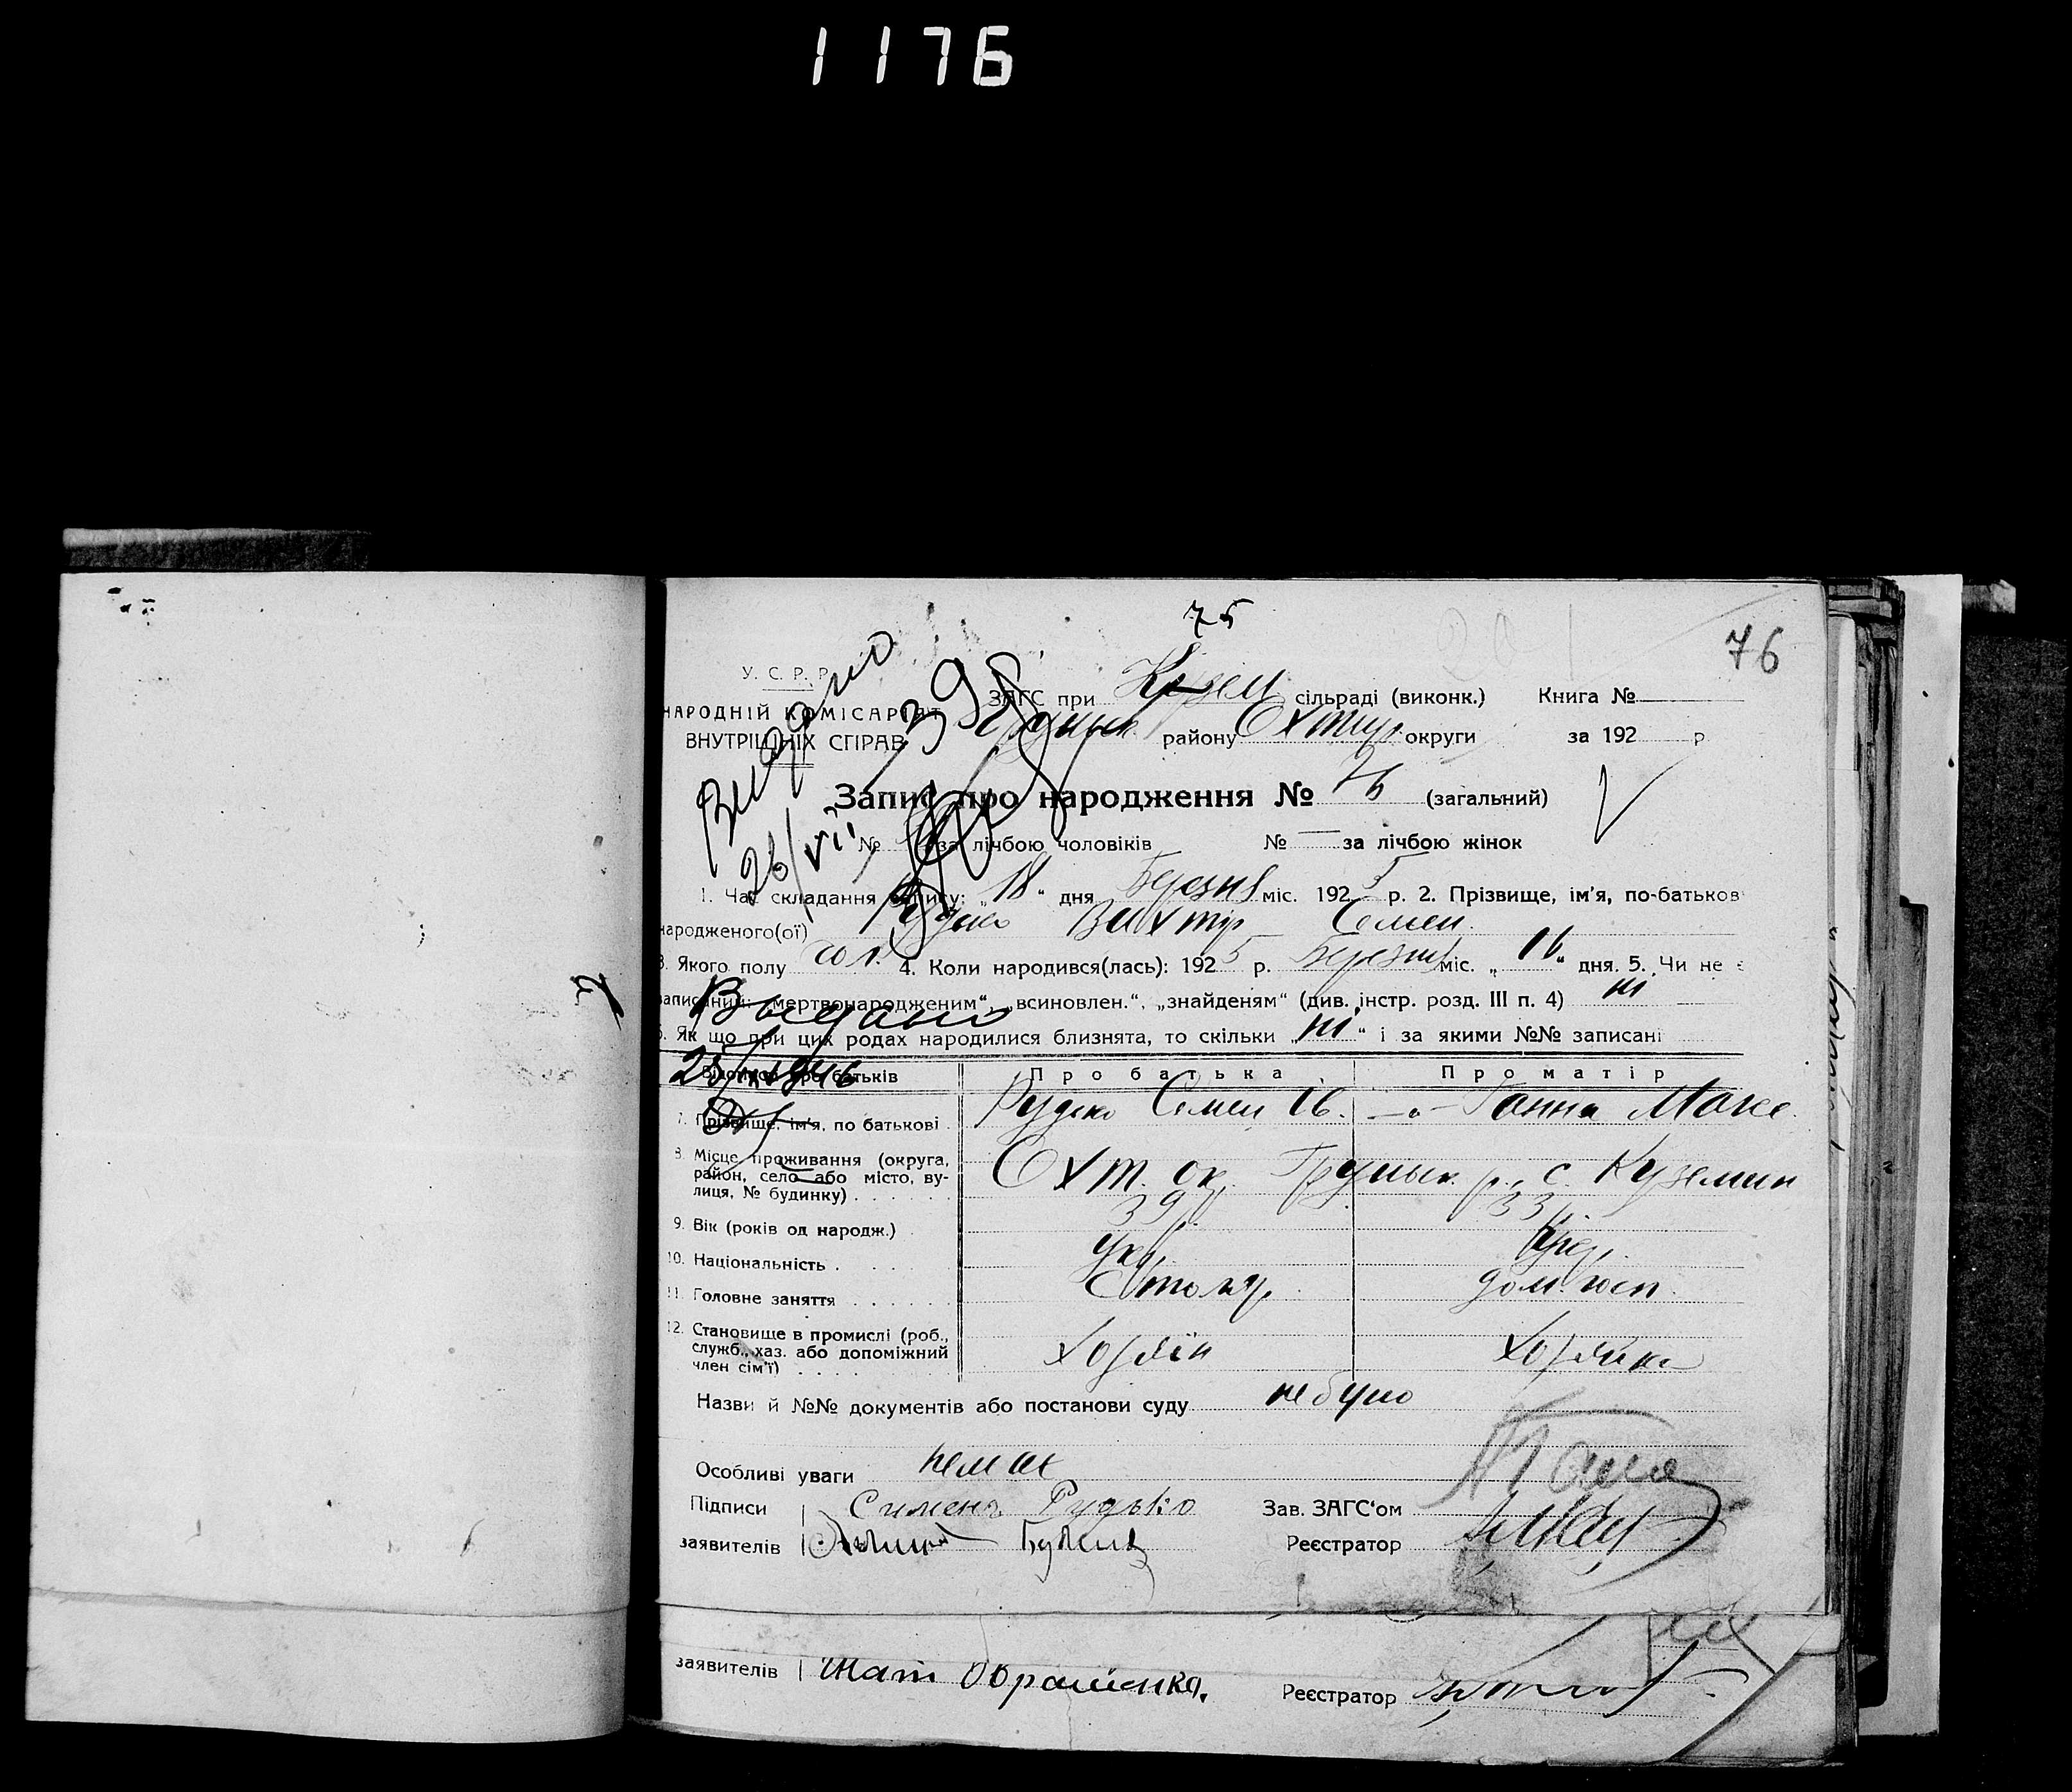 1176
75
76
У. С. Р. Р.
НАРОДНІЙ КОМІСАРІЯТ
ВНУТРІШНІХ СПРАВ
Видано
398
26/VII
ЗАГС при Кузем сільраді (виконк.) Книга №
району Охтир округи за 192 р
Запис про народження № 76 (загальний)
№ за лічбою чоловіків № — за лічбою жінок
1. Час складання запису: „18“ дня Березня міс. 1925 р. 2. Прізвище, ім'я, по-батьков
народженого(ої) Рудько Вихтир Семен.
3. Якого полу чол. 4. Коли народився(лась): 1925 р. Березня міс. „16“ дня. 5. Чи не є
записаний: „мертвонародженим“, „всиновлен.“, „знайденям“ (див. інстр. розд. III п. 4) ні
6. Як що при цих родах народилися близнята, то скільки „ні“ і за якими №№ записані
Выдано
Відомости про батьків Про батька Про матір
7. Прізвище, ім'я, по батькові Рудько Семен Ів. —„— Ганна Макс.
8. Місце проживання (округа, район, село або місто, ву-
лиця, № будинку) Охт. ок. Груньк. р., с. Куземин
9. Вік (років од народж.) 39 р. 33 р.
10. Національність Укр. Укр.
11. Головне заняття Столяр дом. госп.
12. Становище в промислі (роб.,
служб., хаз. або допоміжний
член сім'ї) Хозяїн Хозяйка
Назви й №№ документів або постанови суду не було
Особливі уваги немає
Підписи Сименъ Рудько Зав. ЗАГС'ом
заявителів Реєстратор
заявителів Реєстратор